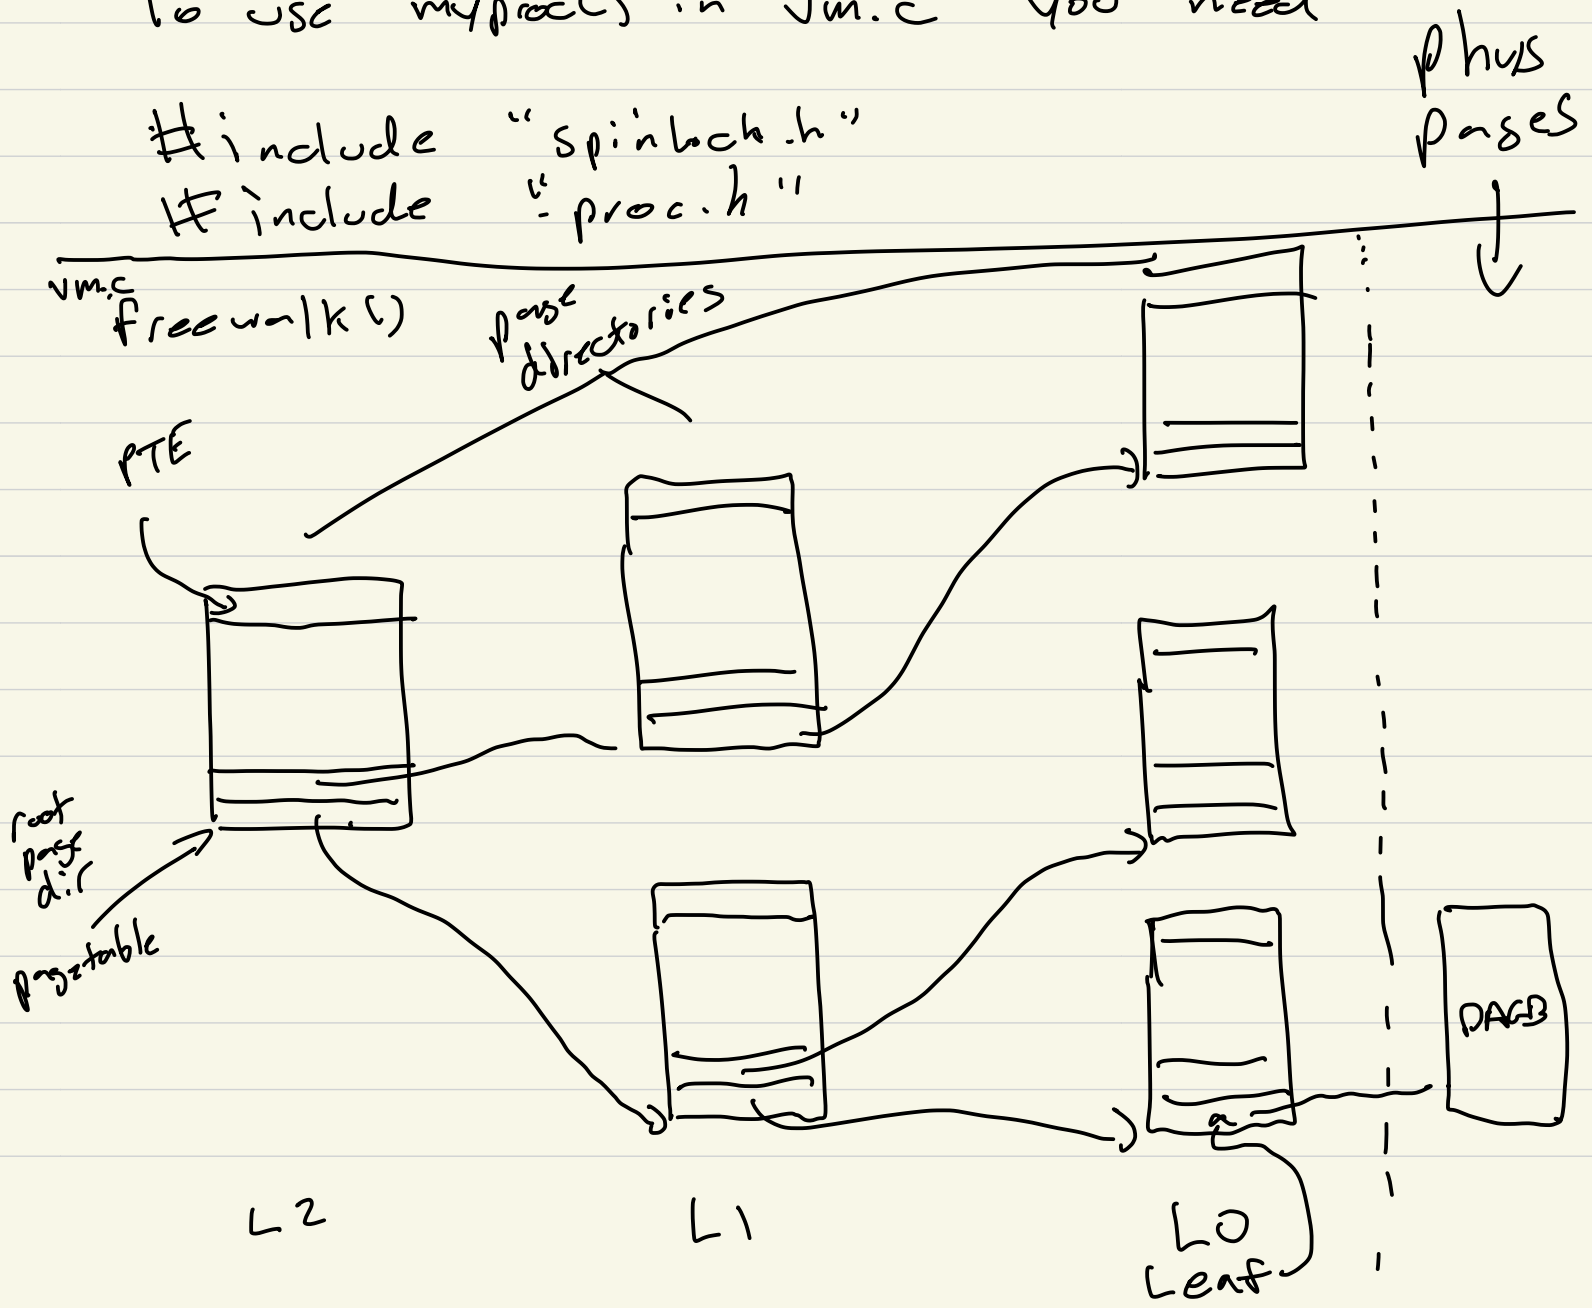 To use myproc() in vm.c you need
#include "spinlock.h"
#include "proc.h"
phys
pages
vm.c
freewalk()
page
directories
PTE
root
page
dir
pagetable
PAGE
L2
L1
L0
Leaf